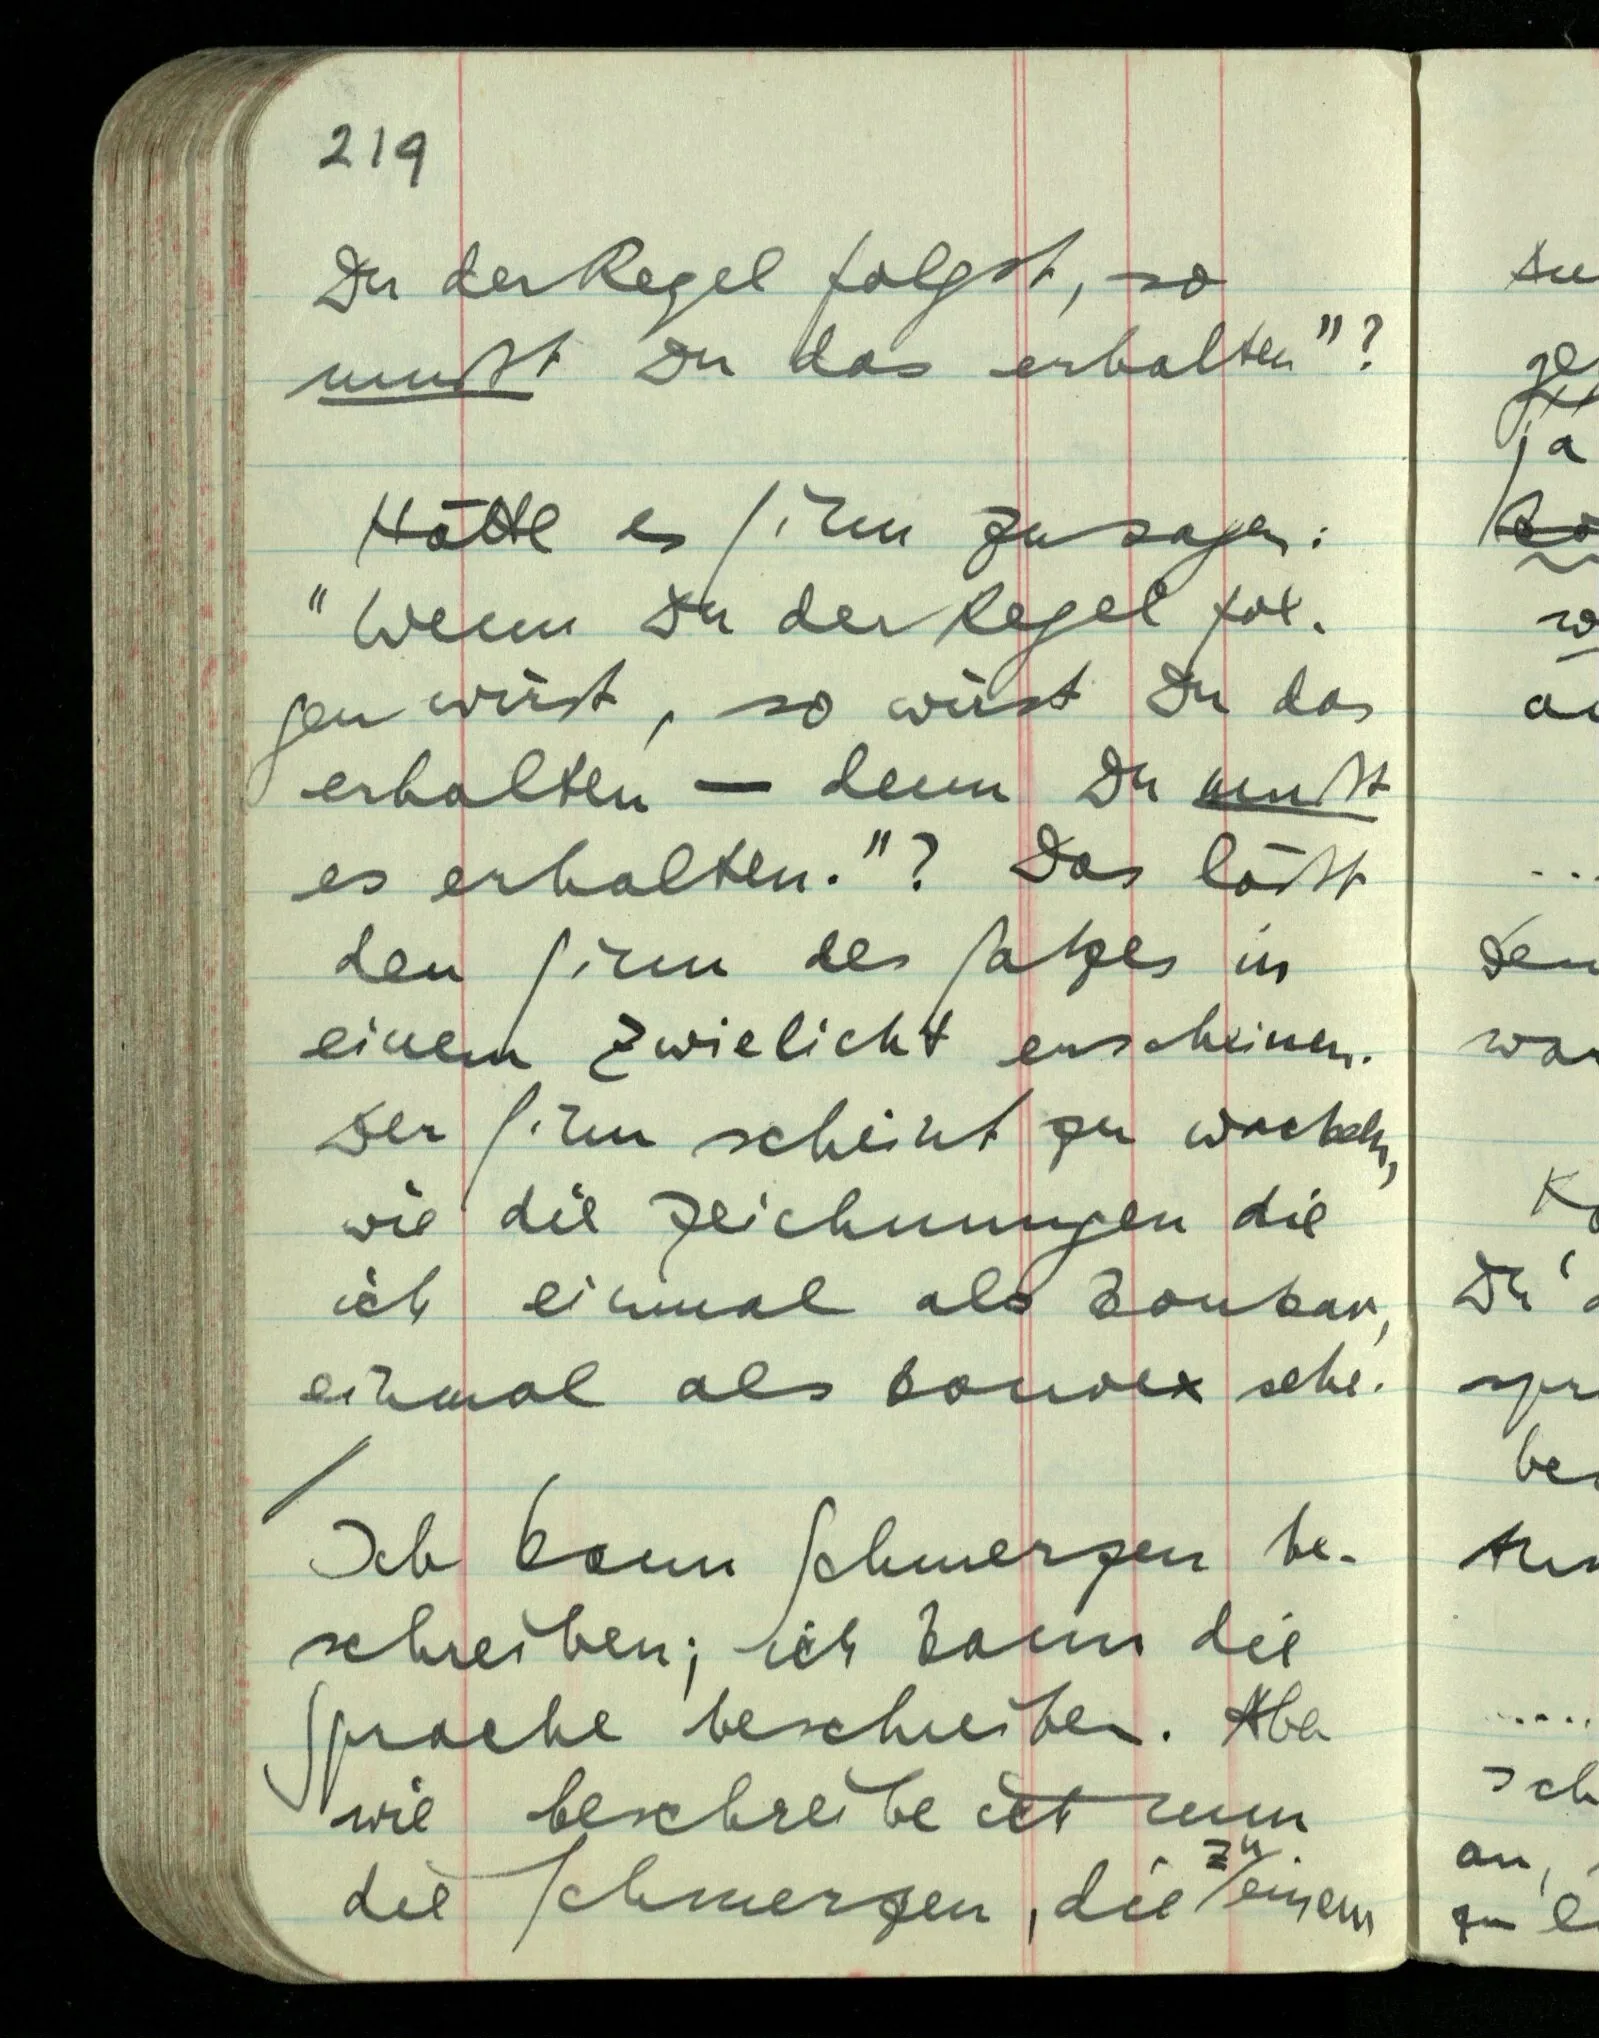 219
Du der Regel folgst, so
mußt Du das erhalten"?
Hätte es Sinn zu sagen:
"Wenn Du der Regel fol-
gen wirst, so wirst Du das
erhalten — denn Du mußt
es erhalten."? Das läßt
den Sinn des Satzes in
einem Zwielicht erscheinen.
Der Sinn scheint zu wackeln,
wie die Zeichnungen die
ich einmal als konkav,
einmal als konvex sehe.
/
Ich kann Schmerzen be-
schreiben; ich kann die
Sprache beschreiben. Aber
wie beschreibe ich nun
die Schmerzen, die zu einem